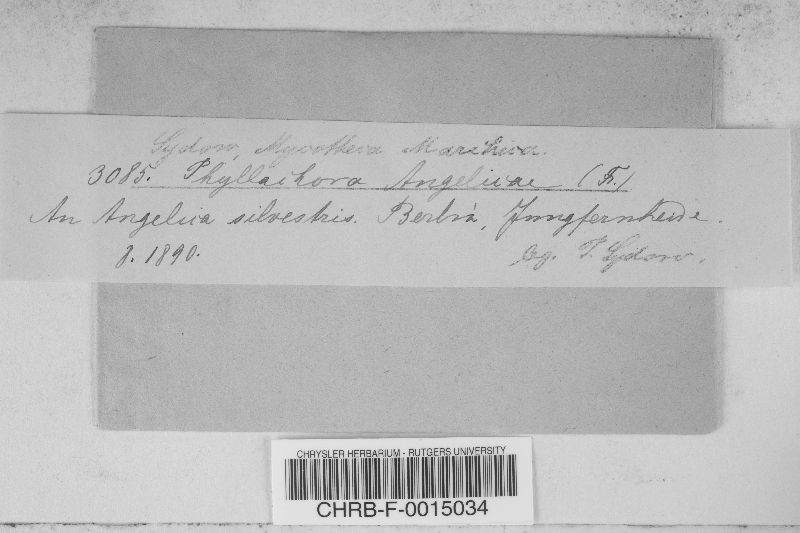 Sydow, Mycotheca Marchica.
3085. Phyllachora Angelicae (Fr.)
An Angelica silvestris. Berlin, Jungfernheide.
8. 1890. lg. P. Sydow.
CHRYSLER HERBARIUM - RUTGERS UNIVERSITY
CHRB-F-0015034